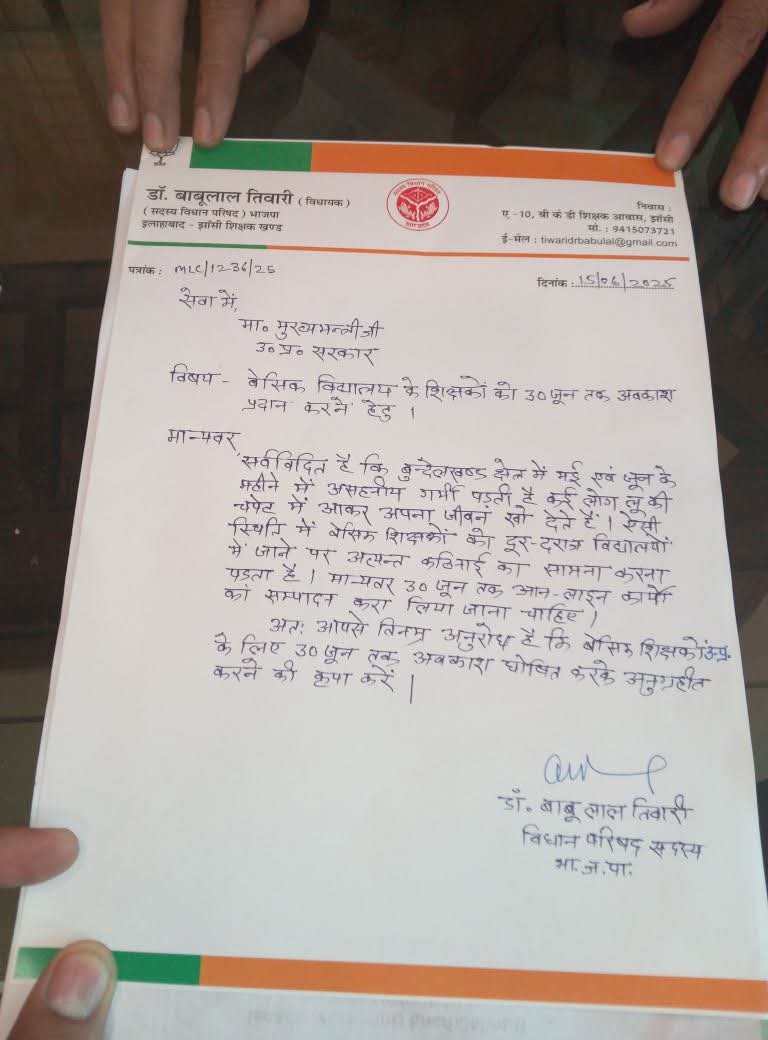 डॉ. बाबूलाल तिवारी ( विधायक )
( सदस्य विधान परिषद ) भाजपा
इलाहाबाद - झाँसी शिक्षक खण्ड
उत्तर प्रदेश
निवास :
ए -10, बी के डी शिक्षक आवास, झाँसी
मो. : 9415073721
ई-मेल : tiwaridrbabulal@gmail.com
पत्रांक : MLC/1236/25
दिनांक : 15/06/2025
सेवा में,
मा० मुख्यमन्त्री जी
उ० प्र० सरकार
विषय - बेसिक विद्यालय के शिक्षकों को 30 जून तक अवकाश
प्रदान करने हेतु ।
मान्यवर,
सर्वविदित है कि बुन्देलखण्ड क्षेत्र में मई एवं जून के
महीने में असहनीय गर्मी पड़ती है कई लोग लू की
चपेट में आकर अपना जीवन खो देते हैं । ऐसी
स्थिति में बेसिक शिक्षकों को दूर-दराज विद्यालयों
में जाने पर अत्यन्त कठिनाई का सामना करना
पड़ता है । मान्यवर 30 जून तक आन-लाइन कार्यों
का सम्पादन करा लिया जाना चाहिए ।
अतः आपसे विनम्र अनुरोध है कि बेसिक शिक्षकों उ.प्र.
के लिए 30 जून तक अवकाश घोषित करके अनुग्रहीत
करने की कृपा करें ।
डॉ० बाबू लाल तिवारी
विधान परिषद सदस्य
भा.ज.पा.